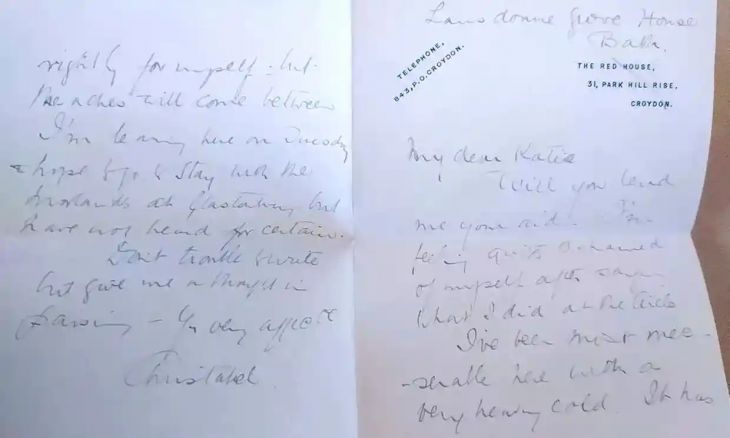 Lansdowne Grove House
Bath.
TELEPHONE,
843, P.O. CROYDON.
THE RED HOUSE,
31, PARK HILL RISE,
CROYDON.
My dear Katie
Will you lend
me your aid. I'm
feeling quite ashamed
of myself after saying
what I did at the
I've been most mee-
-serable here with a
very heavy cold. It has
rightly for myself - but
the aches will come between
I'm leaving here on Tuesday
& hope to go & stay with the
at Glastonbury but
have not heard for certain.
Don't trouble to write
but give me a thought in
passing - Yr very affecte
Christabel